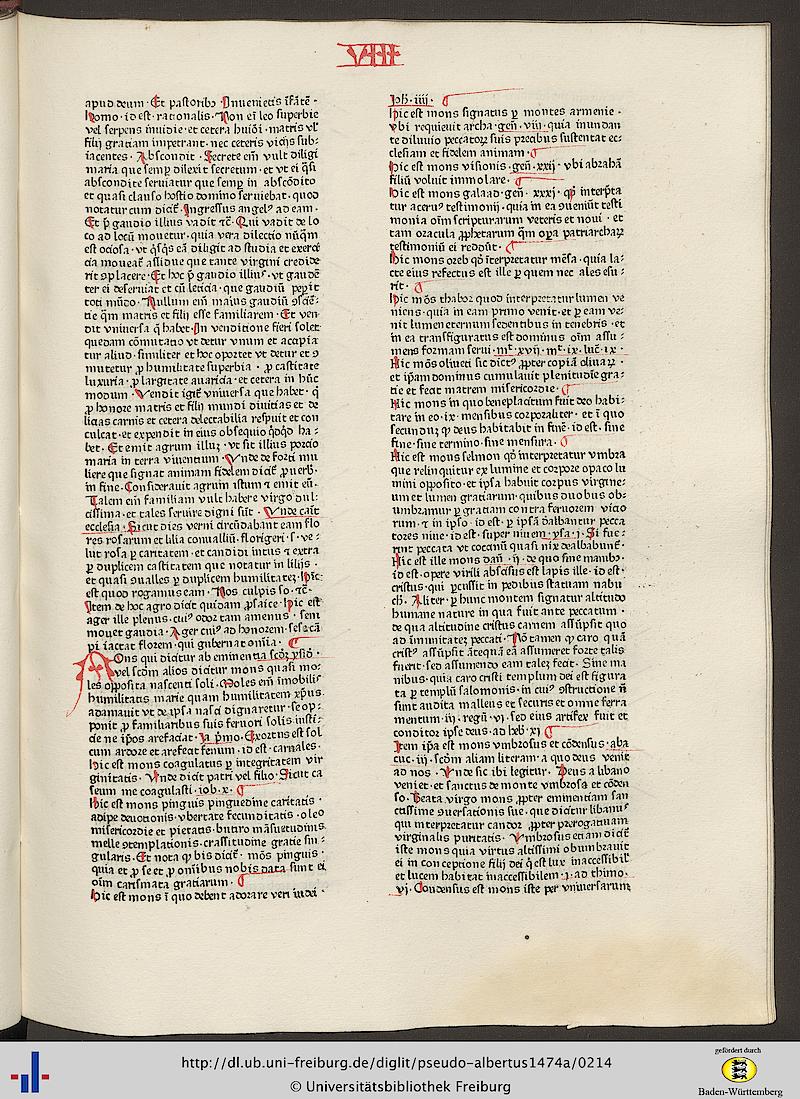 VIII
apud deum · Et pastoribꝫ · Invenietis ĩfãtẽ ·
Homo · id est · rationalis · Non ei leo superbie
vel serpens invidie · et cetera huiõi · matris vl'
filij gratiam impetrant · nec ceteris vicijs sub⸗
iacentes · Abscondit · Secrete em̃ vult diligi
maria que semp̱ dilexit secretum · et vt ei q̃si
abscondite serviatur que semp̱ in abscõdito
et quasi clauso hostio domino serviebat · quod
notatur cum dicit̃ · Ingressus angelꝰ ad eam ·
Et p̃ gaudio illius vadit ⁊c̃ · Qui vadit de lo
co ad locũ movetur · quia vera dilectio nũqm̃
est ociosa · vt q̃sq̃s eã diligit ad studia et exerce
cia moveat̃ assidue que tante virgini credide
rit ꝯplacere · Et hoc p̃ gaudio illiꝰ · vt gaudẽ
ter ei deserviat et cũ leticia · que gaudiũ pep̱it
toti mũdo · Nullum em̃ maius gaudiũ ꝯsciẽ⸗
tie qm̃ matris et filij esse familiarem · Et ven
dit vniversa q̃ habet · In venditione fieri solet
quedam cõmutatio vt detur vnum et accipia
tur aliud · similiter et hoc oportet vt detur et ꝯ
mutetur p̱ humilitate superbia · p̱ castitate
luxuria · p̱ largitate avaricia · et cetera in hũc
modum · Vendit igit̃ vniversa que habet · q̃
p̱ honore matris et filij mundi divitias et de
licias carnis et cetera delectabilia respuit et con
culcat · et expendit in eius obsequio q̃dq̃d ha⸗
bet · Et emit agrum illuꝫ · vt sit illius porcio
maria in terra viventium · Vnde de forti mu
liere que signat animam fidelem dicit̃ · proverb ·
in fine · Consideravit agrum istum ⁊ emit eũ ·
Talem em̃ familiam vult habere virgo dul⸗
cissima · et tales servire digni sũt · Vnde cãit
ecclesia · Sicut dies verni circũdabant eam flo
res rosarum et lilia convalliũ · florigeri · s · ve⸗
lut rosa p̱ caritatem · et candidi intus ⁊ extra
p̱ duplicem castitatem que notatur in lilijs ·
et quasi ꝯualles p̱ duplicem humilitateꝫ · Hic
est quod rogamus eam · Nos culpis so · ⁊c̃ ·
Item de hoc agro dicit quidam p̱saice · Hic est
ager ille plenus · cuiꝰ odor tam amenus · sem
movet gaudia · Ager cuiꝰ ad honorem · sp̱
pi iactat florem · qui gubernat om̃ia ·
Mons qui dicitur ab eminentia scd̃m
vel scd̃m alios dicitur mons quasi mo⸗
les opposita nascenti soli · Moles em̃ imobilis
humilitatis marie quam humilitatem xp̃us
adamavit vt de ip̃sa nasci dignaretur · se op⸗
ponit p̱ familiaribus suis fervori solis iusti⸗
cie ne ip̃os arefaciat · Ja p̃mo · Exortus est sol
cum ardore et arefecit fenum · id est · carnales ·
Hic est mons coagulatus p̱ integritatem vir
ginitatis · Vnde dicit patri vel filio · Sicut ca
seum me coagulasti · iob · x ·
Hic est mons pinguis pinguedine caritatis ·
adipe devotionis · vbertate fecunditatis · oleo
misericordie et pietatis · butiro mãsuetudinis
melle ꝯtemplationis · crassitudine gratie sin⸗
gularis · Et nota q̃ bis dicit̃ · mõs pinguis ·
quia et p̱ se et p̱ om̃ibus nobis data sunt ei
om̃ carismata gratiarum ·
Hic est mons ĩ quo debent adorare veri iudei ·
Joh · iiij ·
Hic est mons signatus p̱ montes armenie ·
vbi requievit archa · geñ · viij · quia inundan
te diluvio peccatoꝝ suis precibus sustentat ec⸗
clesiam et fidelem animam ·
Hic est mons visionis · geñ · xxij · vbi abrahã
filiũ voluit immolare ·
Hic est mons galaad · geñ · xxxj · qd̃ interp̃ta
tur acervꝰ testimonij · quia in ea ꝯueniũt testi
monia om̃ scripturarum veteris et novi · et
tam oracula p̱phetarum qm̃ op̱a patriarchaꝝ
testimoniũ ei reddũt ·
Hic mons oreb qd̃ ĩterpretatur mẽsa · quia la⸗
cte eius refectus est ille p̱ quem nec ales esu⸗
rit ·
Hic mõs thabor quod interpretatur lumen ve
niens · quia in eam primo venit · et p̱ eam ve⸗
nit lumen eternum sedentibus in tenebris · et
in ea transfiguratus est dominus om̃ assu⸗
mens formam servi · mt̃ · xvij · mt̃ · ix · luc̃ · ix ·
Hic mõs oliveti sic dictꝰ propter copiã olivaꝝ ·
et ip̃am dominus cumulavit plenitudĩe gra⸗
tie et fecit matrem misericordie ·
Hic mons in quo beneplacitum fuit deo habi⸗
tare in eo · ix · mensibus corporaliter · et ĩ quo
secundũ ꝙ deus habitabit in finẽ · id est · sine
fine · sine termino · sine mensura ·
Hic est mons selmon qd̃ interpretatur vmbra
que relinquitur ex lumine et corpore opaco lu
mini opposito · et ipsa habuit corpus virgine⸗
um et lumen gratiarum · quibus duobus ob⸗
umbramur p̱ gratiam contra fervorem vicio
rum · ⁊ in ipso · id est · p̱ ipsã dalbantur pecca
tores nive · id est · super nivem · ysa · j · Si fue⸗
rint peccata vt coccinũ quasi nix dealbabunt̃ ·
Hic est ille mons dañ · ij · de quo sine manibꝫ ·
id est · opere virili abscisus est lapis ille · id est ·
cristus · qui p̱cussit in pedibus statuam nabu
ch̃ · Aliter · p̱ hunc montem signatur altitudo
humane nature in qua fuit ante peccatum ·
de qua altitudine cristus carnem assũpsit quo
ad immunitateꝫ peccati · Nõ tamen ꝙ caro quã
cristꝰ assũpsit ãteq̃ eã assumeret forte talis
fuerit · sed assumendo eam taleꝫ fecit · Sine ma
nibus · quia caro cristi templum dei est figura
ta p̱ templũ salomonis · in cuiꝰ ꝯstructione ñ
sunt audita malleus et securis et omne ferra
mentum · iij · regũ · vj · sed eius artifex fuit et
conditor ip̃se deus · ad heb̃ · xj
Item ip̃a est mons vmbrosus et cõdensus · aba
cuc · iij · scd̃m aliam literam · a quo deus venit
ad nos · Vnde sic ibi legitur · Deus a libano
veniet · et sanctus de monte vmbrosa et cõden
so · Beata virgo mons propter eminentiam san
ctissime ꝯuersationis sue · que dicitur libanꝰ
qui interpretatur candor propter prerogativam
virginalis puritatis · Vmbrosus etiam dicit̃
iste mons quia virtus altissimi obumbravit
ei in conceptione filij dei q̃ est lux inaccessibil̃
et lucem habitat inaccessibilem · j · ad thimo ·
vj · Condensus est mons iste per vniversarum
http://dl.ub.uni-freiburg.de/diglit/pseudo-albertus1474a/0214
© Universitätsbibliothek Freiburg
gefördert durch
Baden-Württemberg